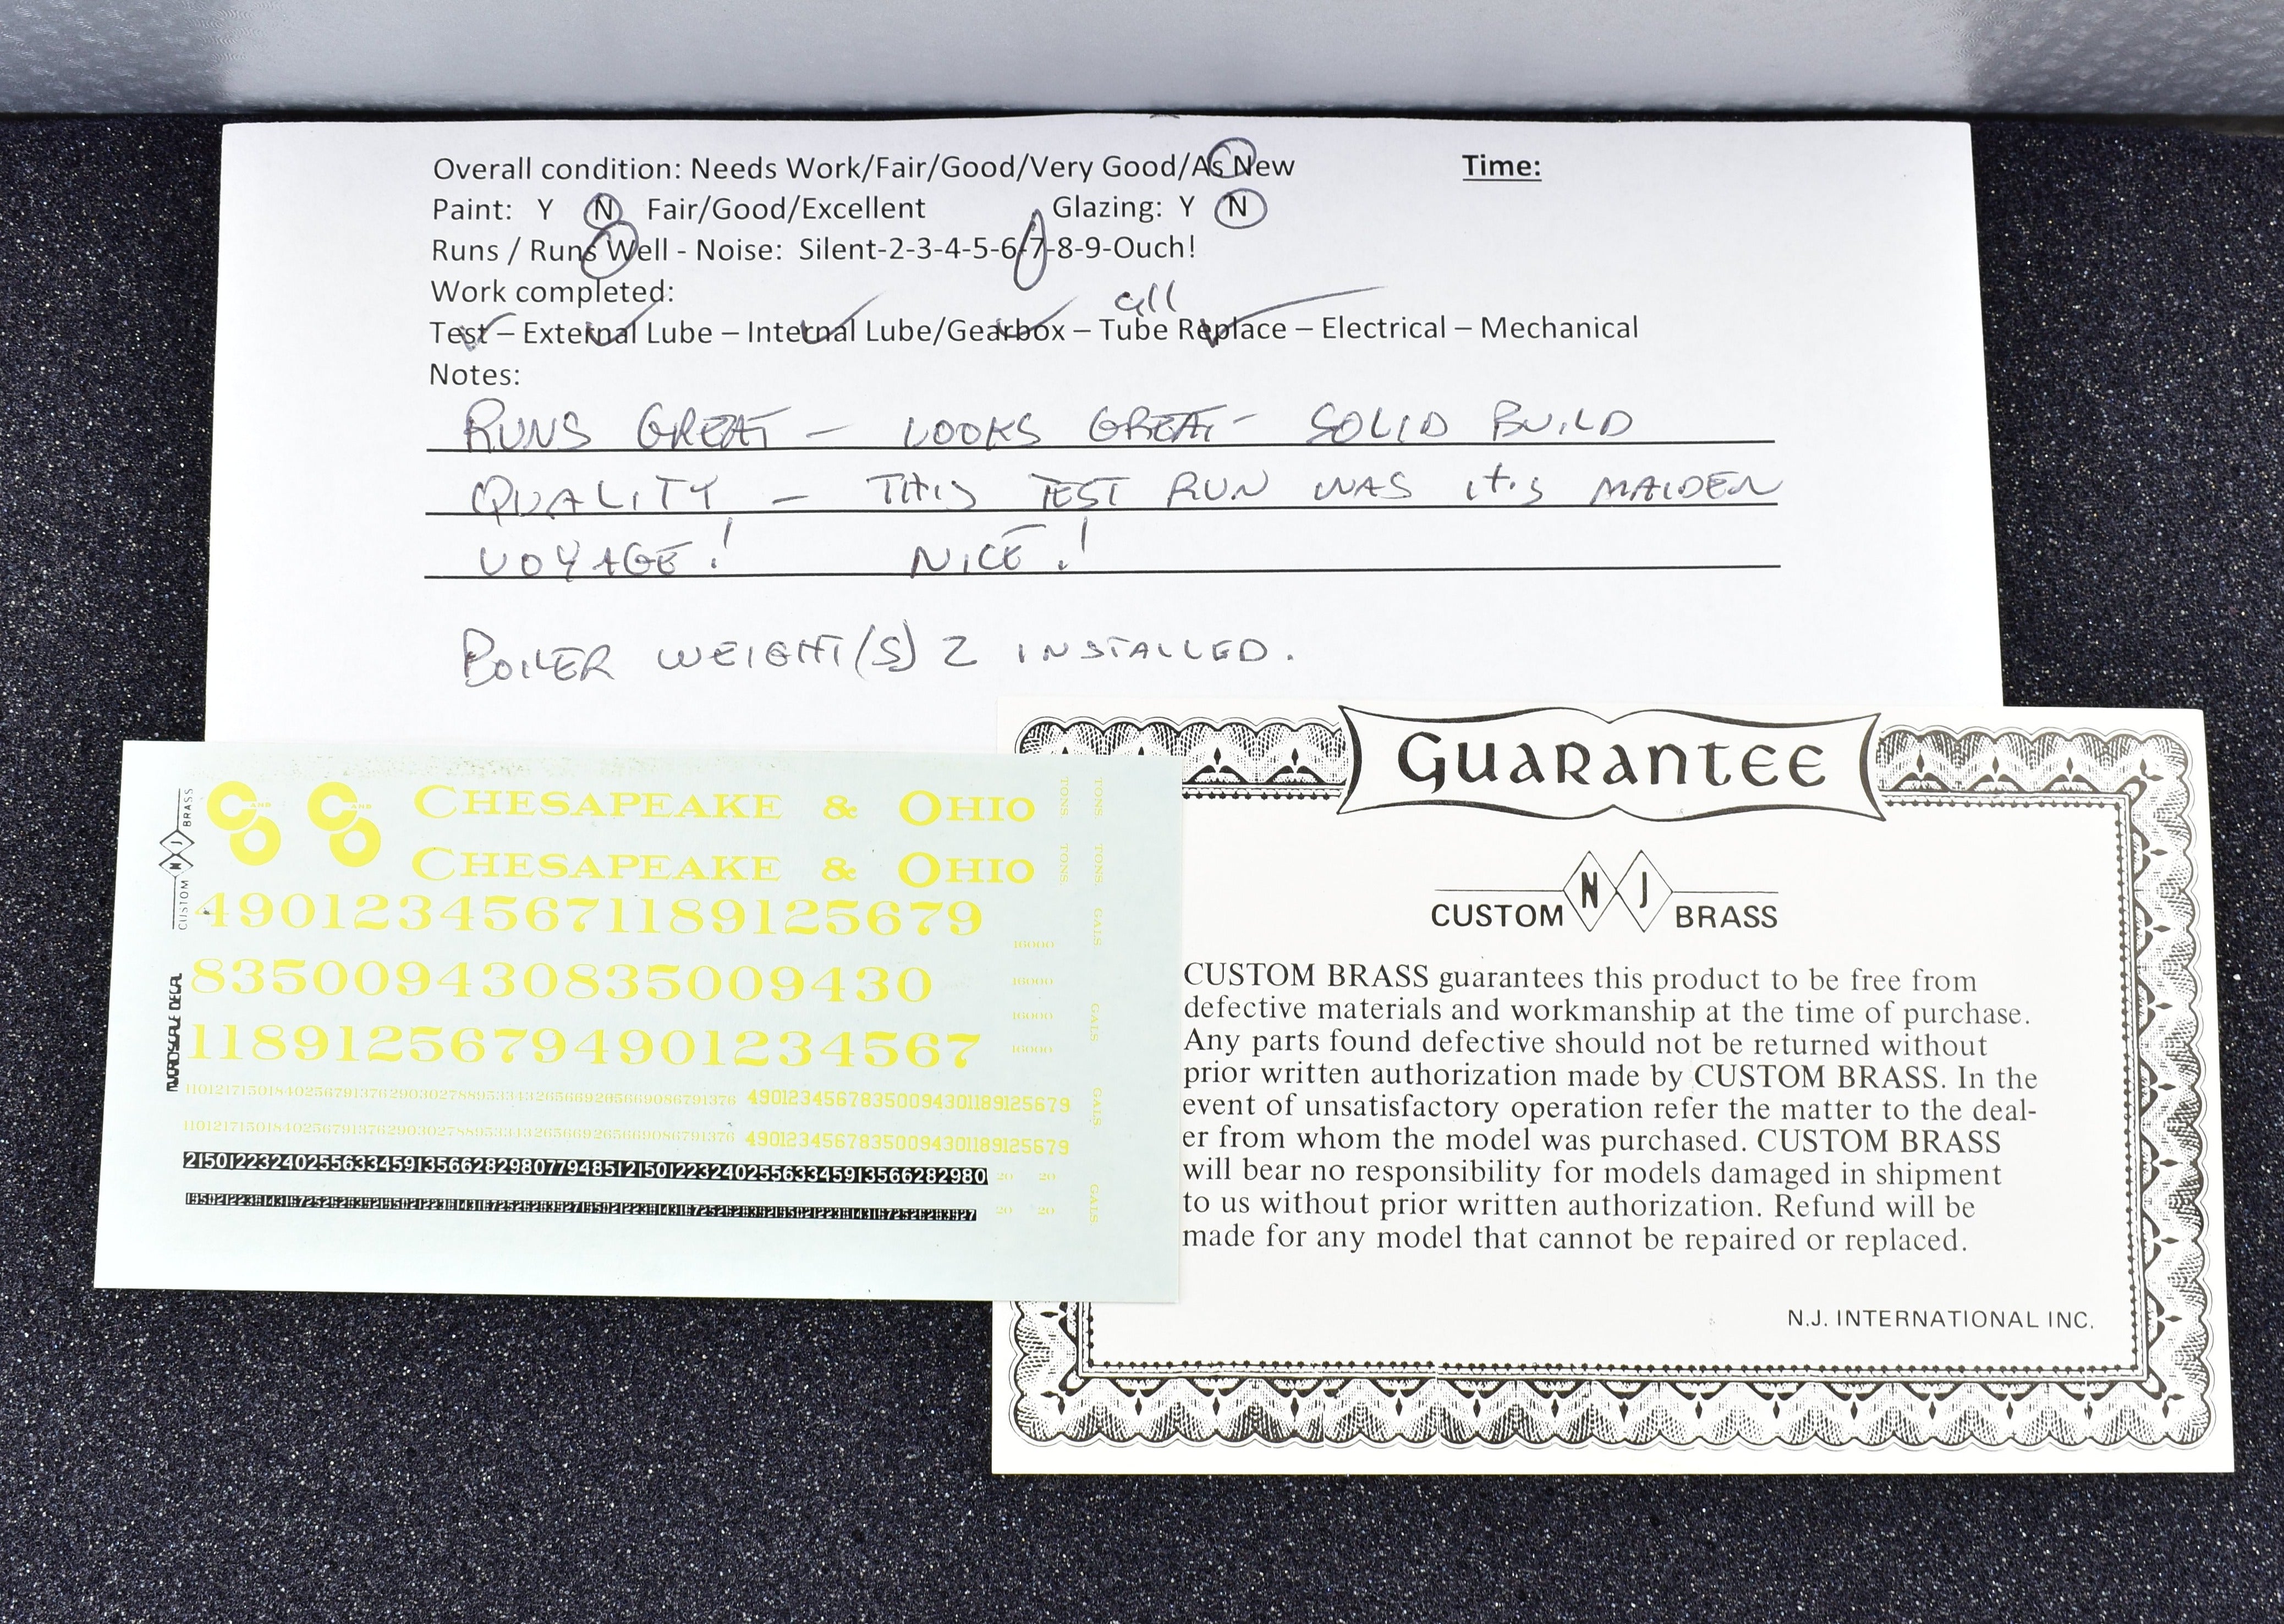 Overall condition: Needs Work/Fair/Good/Very Good/As New
Time:
Paint: Y N Fair/Good/Excellent
Glazing: Y N
Runs / Runs Well - Noise: Silent-2-3-4-5-6-7-8-9-Ouch!
Work completed:
all
Test – External Lube – Internal Lube/Gearbox – Tube Replace – Electrical – Mechanical
Notes:
RUNS GREAT – LOOKS GREAT – SOLID BUILD
QUALITY – THIS TEST RUN WAS it's MAIDEN
VOYAGE! NICE!
BOILER WEIGHT(S) 2 INSTALLED.
CUSTOM N J BRASS
MICROSCALE DECAL
C AND O C AND O
CHESAPEAKE & OHIO
CHESAPEAKE & OHIO
49012345671189125679
835009430835009430
11891256794901234567
49012345678350094301189125679
49012345678350094301189125679
16000
16000
16000
16000
TONS. TONS.
TONS. TONS.
GALS.
GALS.
GALS.
GALS.
20 20
20 20
GUARANTEE
CUSTOM N J BRASS
CUSTOM BRASS guarantees this product to be free from
defective materials and workmanship at the time of purchase.
Any parts found defective should not be returned without
prior written authorization made by CUSTOM BRASS. In the
event of unsatisfactory operation refer the matter to the deal-
er from whom the model was purchased. CUSTOM BRASS
will bear no responsibility for models damaged in shipment
to us without prior written authorization. Refund will be
made for any model that cannot be repaired or replaced.
N.J. INTERNATIONAL INC.